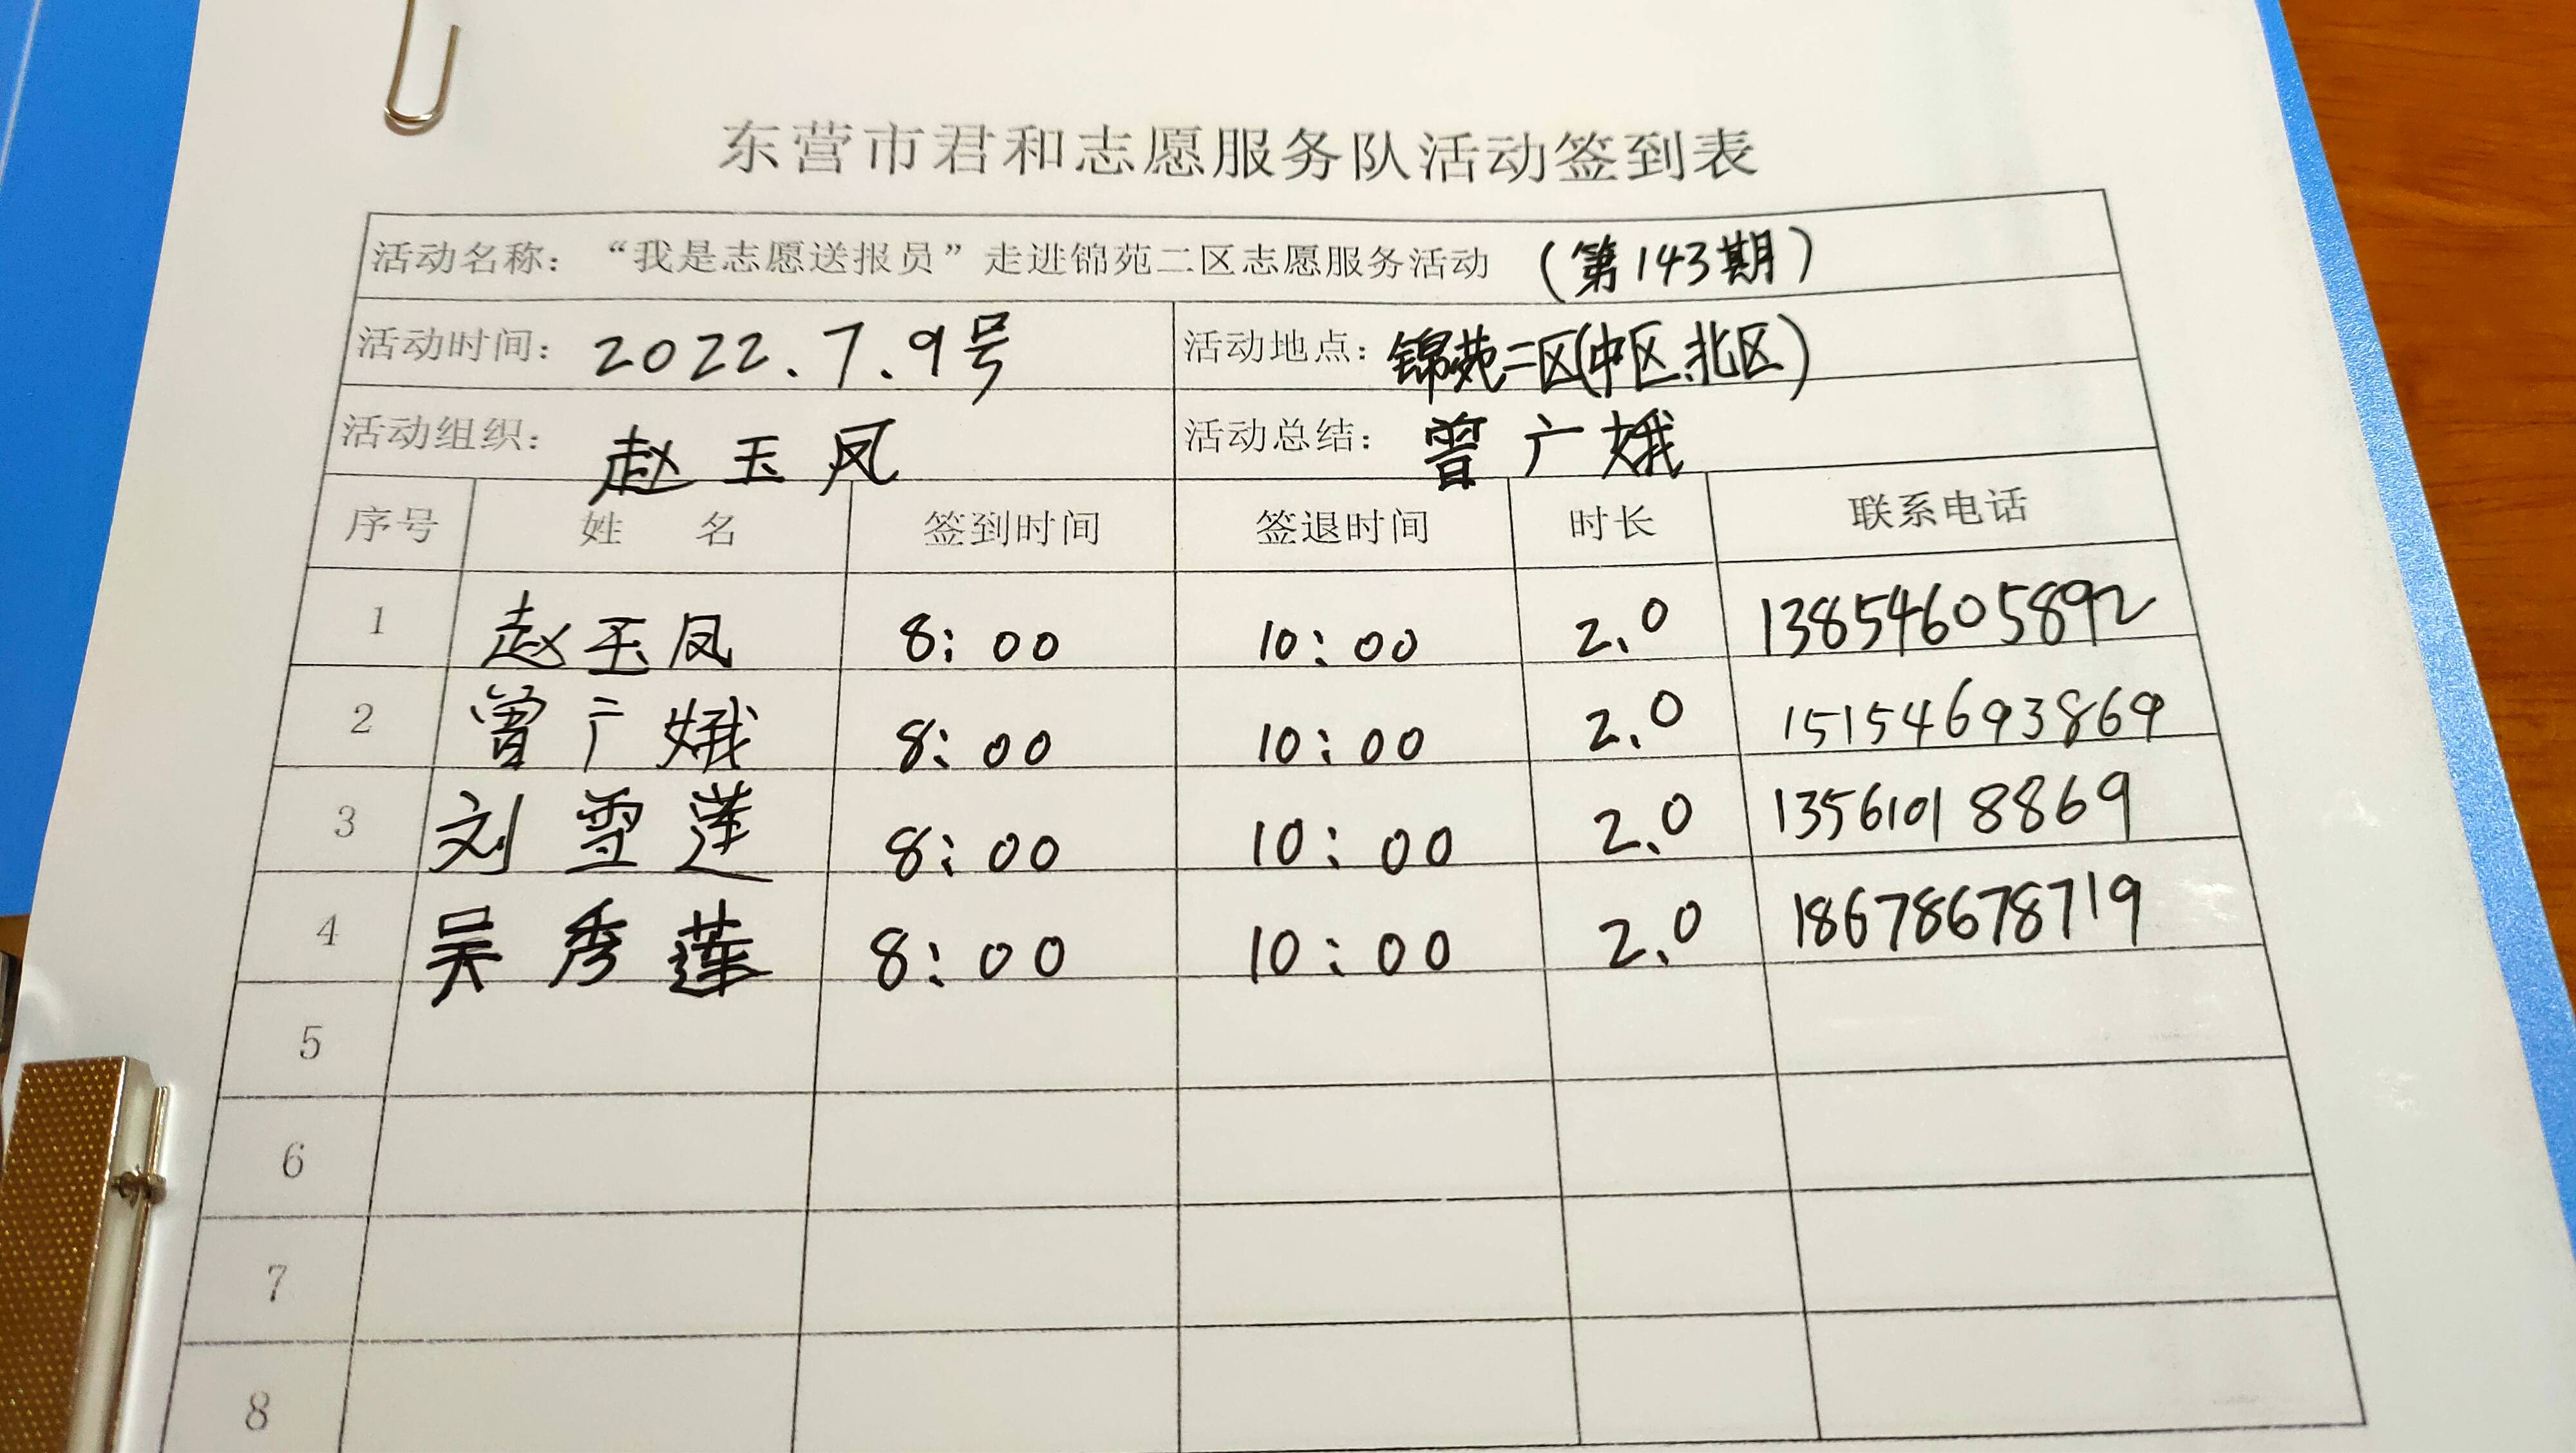 东营市君和志愿服务队活动签到表
活动名称：“我是志愿送报员”走进锦苑二区志愿服务活动（第143期）
活动时间：2022.7.9号 活动地点：锦苑二区(中区、北区)
活动组织：赵玉凤 活动总结：曾广娥
序号 姓 名 签到时间 签退时间 时长 联系电话
1 赵玉凤 8:00 10:00 2.0 13854605892
2 曾广娥 8:00 10:00 2.0 15154693869
3 刘雪莲 8:00 10:00 2.0 13561018869
4 吴秀莲 8:00 10:00 2.0 18678678719
5
6
7
8